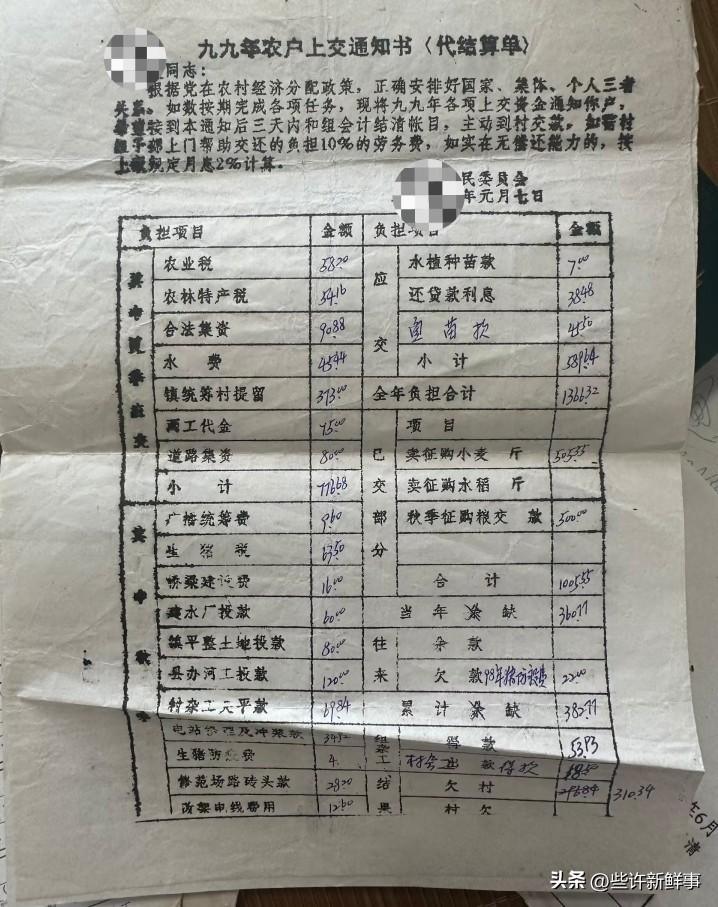 九九年农户上交通知书〈代结算单〉
同志：
根据党在农村经济分配政策，正确安排好国家、集体、个人三者
关系，如数按期完成各项任务，现将九九年各项上交资金通知你户，
接到本通知后三天内和组会计结清帐目，主动到村交款，如需村
组干部上门帮助交还的负担10%的劳务费，如实在无偿还能力的，按
上级规定月息2%计算。
民委员会
年元月七日
负担项目 金额 负担项目 金额
农业税 58.20 应 水植种苗款 7.00
农林特产税 54.16 还贷款利息 38.48
合法集资 90.88 交 苗款 45.50
水 费 45.44 小 计 589.64
镇统筹村提留 373.00 全年负担合计 1366.32
两工代金 75.00 项目
道路集资 80.00 已 卖征购小麦 斤 505.55
小 计 776.68 交 卖征购水稻 斤
广播统筹费 9.60 部 秋季征购粮交 款 500.00
生 猪 税 63.50 分
桥梁建设费 16.00 合 计 1005.55
建水厂投款 60.00 当 年 缺 360.77
镇平整土地投款 80.00 往 杂 款
县办河工投款 120.00 来 欠 款 98年猪防疫费 22.00
村杂工 平款 69.84 累 计 缺 382.77
电站修理及冲浆款 34.32 组 得 款 53.73
生猪防疫费 4. 杂工 村会 款 得款 18.50
修范场路砖头款 28.20 结 欠 村 296.84 310.54
改架电线费用 12.60 果 村 欠
年6月
清
头条 @些许新鲜事